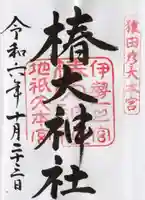 猿田彦大本宮
伊勢一之宮
椿大神社
地祇大本宮
令和六年十月二十三日